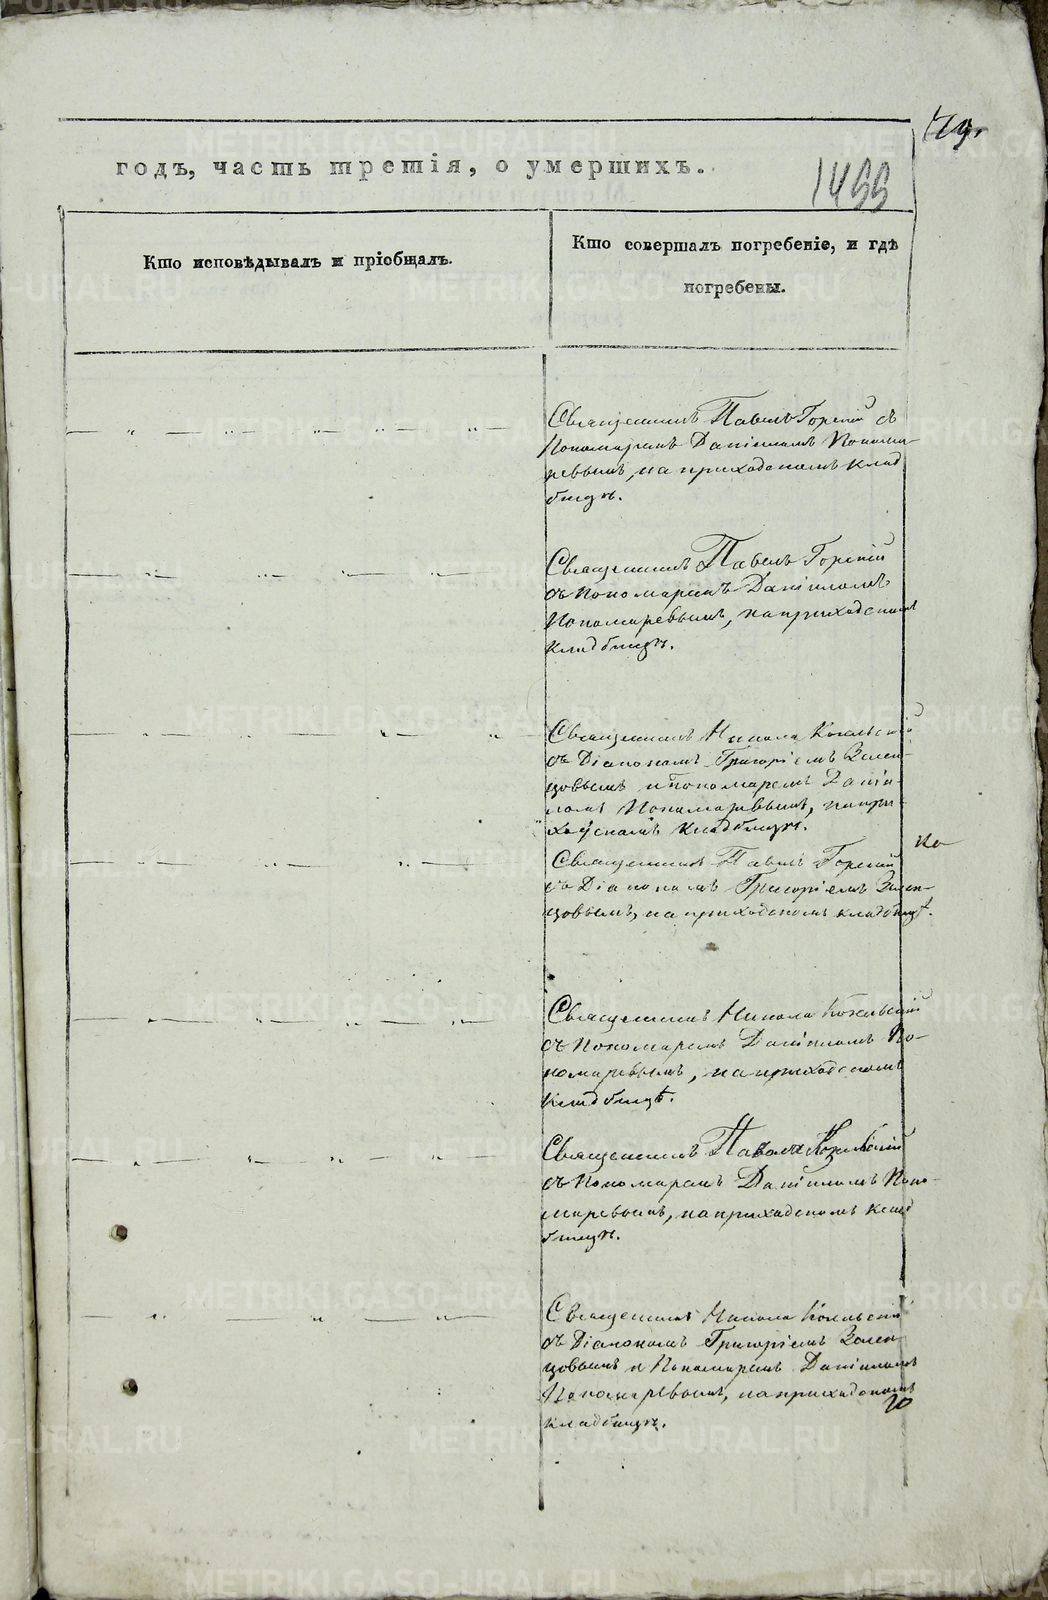 годъ, часть третія, о умершихъ.
Кто исповѣдывалъ и пріобщалъ.
Кто совершалъ погребеніе, и гдѣ
погребены.
Священникъ Павелъ Горскій съ
Пономаремъ Даніиломъ Понома-
ревымъ, на приходскомъ клад
бищѣ.
Священникъ Павелъ Горскій
съ Пономаремъ Даніиломъ
Пономаревымъ, на приходскомъ
кладбищѣ.
Священникъ Никола
съ Діакономъ Григоріемъ Зелен-
цовымъ и Пономаремъ Дании-
ломъ Пономаревымъ, на при-
ходскомъ кладбищѣ.
Священникъ Павелъ Горскій
съ Діакономъ Григоріемъ Зелен-
цовымъ, на приходскомъ кладбищѣ.
Священникъ Никола
съ Пономаремъ Даніиломъ По-
номаревымъ, на приходскомъ
кладбищѣ.
Священникъ
съ Пономаремъ Даніиломъ Поно-
маревымъ, на приходскомъ клад
бищѣ.
Священникъ Никола
съ Діакономъ Григоріемъ Зелен-
цовымъ и Пономаремъ Даніиломъ
Пономаревымъ, на приходскомъ
кладбищѣ.
METRIKI.GASO-URAL.RU